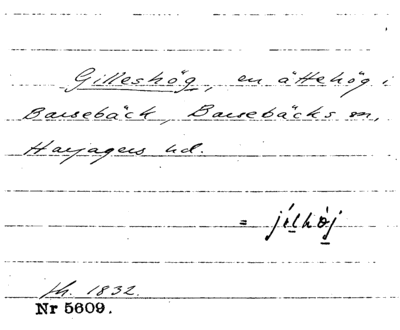 Gilleshög, en ättehög i
Barsebäck, Barsebäcks sn,
Harjagers hd.
= jílhòj
h. 1832.
Nr 5609.